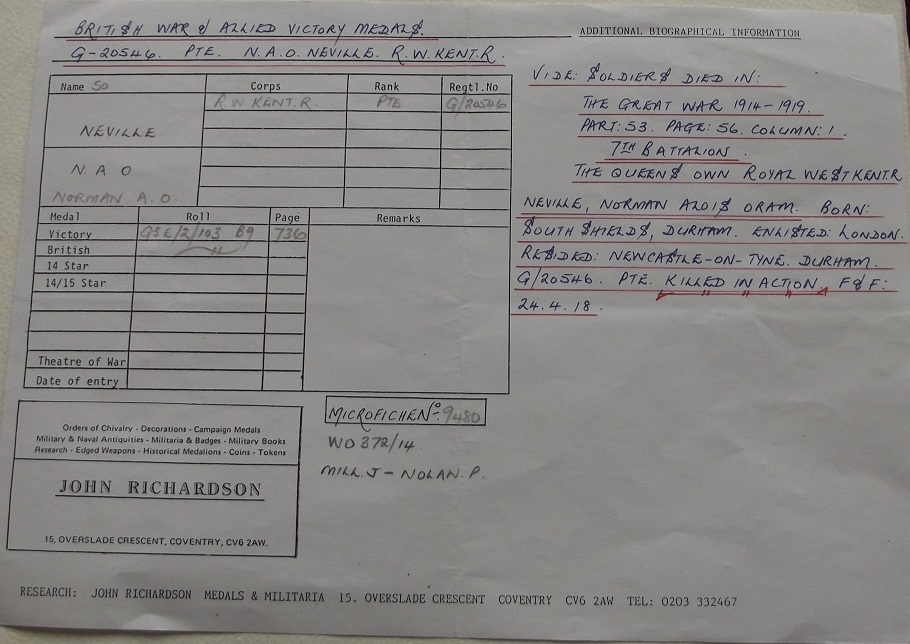 BRITISH WAR & ALLIED VICTORY MEDALS.
G-20546. PTE. N.A.O. NEVILLE. R.W.KENT.R.
ADDITIONAL BIOGRAPHICAL INFORMATION
Name 50 Corps Rank Regtl.No
R.W KENT.R. PTE G/20546
NEVILLE
N. A O
NORMAN A.O.
Medal Roll Page Remarks
Victory GSE/2/103 B9 736
British "
14 Star
14/15 Star
Theatre of War
Date of entry
VIDE: SOLDIERS DIED IN:
THE GREAT WAR 1914-1919.
PART: 53. PAGE: 56. COLUMN: 1.
7TH BATTALION.
THE QUEENS OWN ROYAL WEST KENT.R
NEVILLE, NORMAN ALOIS ORAM. BORN:
SOUTH SHIELDS, DURHAM. ENLISTED: LONDON.
RESIDED: NEWCASTLE-ON-TYNE. DURHAM.
G/20546. PTE. KILLED IN ACTION. F&F:
24.4.18.
MICROFICHE No. 9480
WO 372/14
MILL. J - NOLAN. P.
Orders of Chivalry - Decorations - Campaign Medals
Military & Naval Antiquities - Militaria & Badges - Military Books
Research - Edged Weapons - Historical Medalions - Coins - Tokens
JOHN RICHARDSON
15, OVERSLADE CRESCENT, COVENTRY, CV6 2AW.
RESEARCH: JOHN RICHARDSON MEDALS & MILITARIA 15. OVERSLADE CRESCENT COVENTRY CV6 2AW TEL: 0203 332467